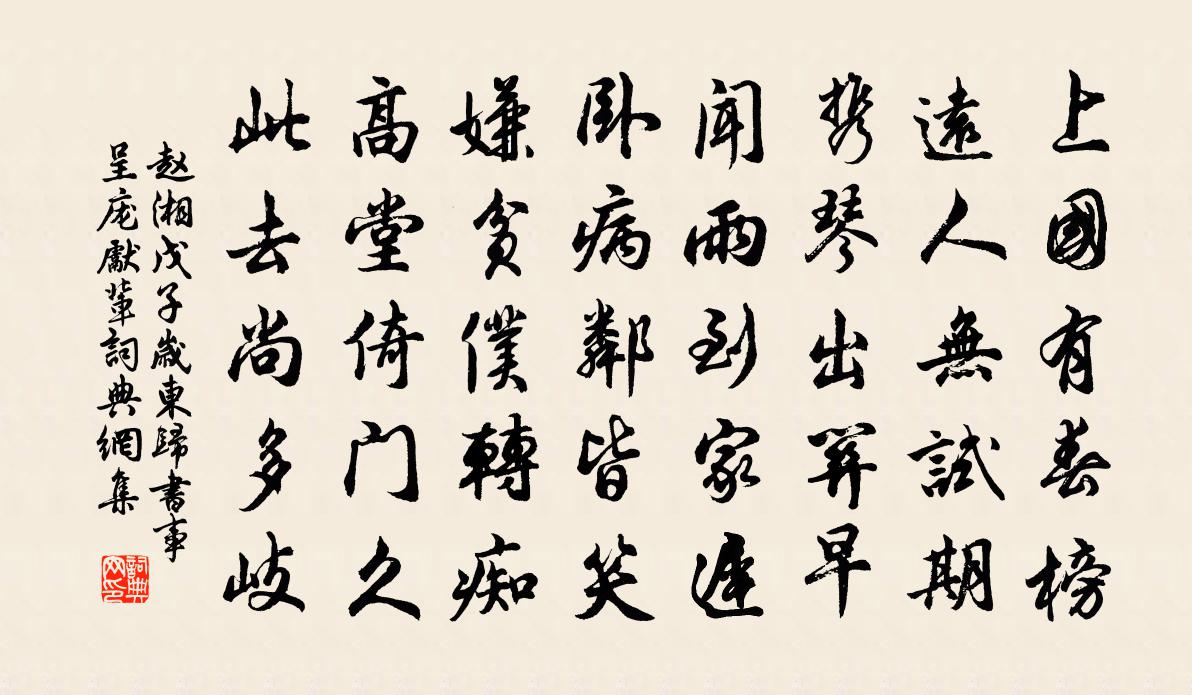 上國有春榜
遠人無試期
携琴出關早
聞雨到家遲
卧病鄰皆笑
嫌貧僕轉痴
高堂倚门久
此去尚多岐
赵湘戊子歲東歸書事
呈庞獻輩詞典網集
詞典网印